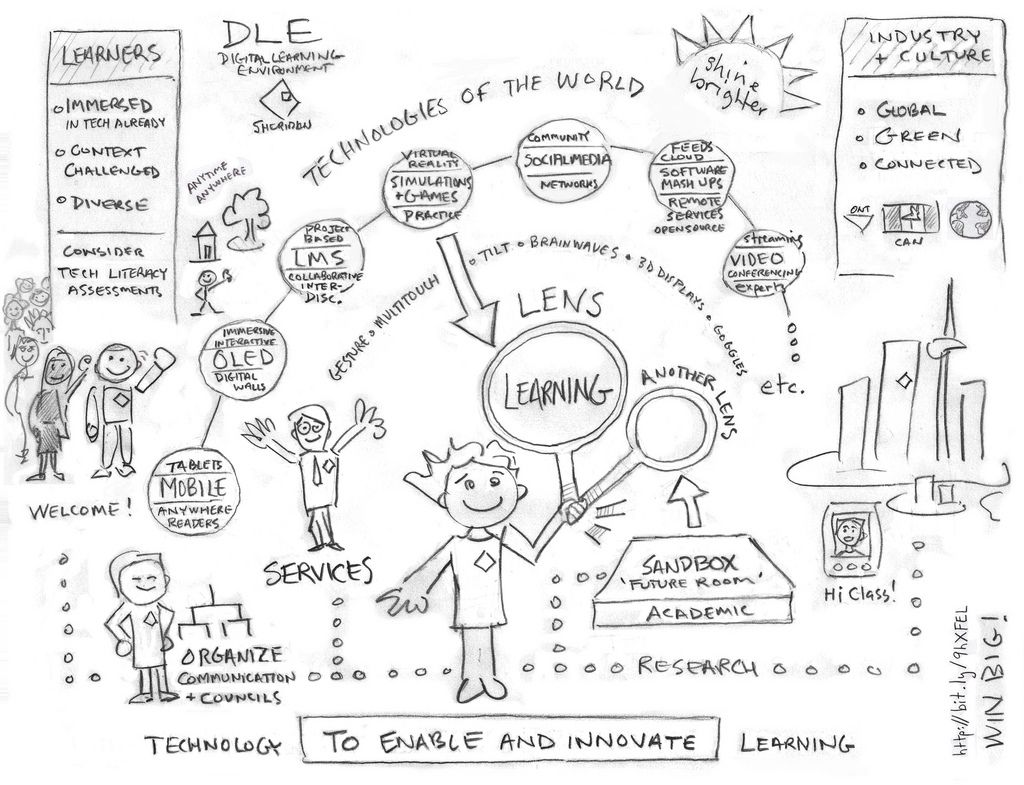 LEARNERS
IMMERSED
IN TECH ALREADY
CONTEXT
CHALLENGED
DIVERSE
CONSIDER
TECH LITERACY
ASSESSMENTS
DLE
DIGITAL LEARNING
ENVIRONMENT
SHERIDAN
ANYTIME
ANYWHERE
TECHNOLOGIES OF THE WORLD
shine
brighter
INDUSTRY
+ CULTURE
GLOBAL
GREEN
CONNECTED
ONT
CAN
TABLETS
MOBILE
ANYWHERE
READERS
IMMERSIVE
INTERACTIVE
OLED
DIGITAL
WALLS
PROJECT
BASED
LMS
COLLABORATIVE
INTER-
DISC.
VIRTUAL
REALITY
SIMULATIONS
+ GAMES
PRACTICE
COMMUNITY
SOCIALMEDIA
NETWORKS
FEEDS
CLOUD
SOFTWARE
MASH UPS
REMOTE
SERVICES
OPENSOURCE
streaming
VIDEO
CONFERENCING
experts
etc.
GESTURE o MULTITOUCH o TILT o BRAINWAVES o 3D DISPLAYS o GOGGLES
LENS
LEARNING
ANOTHER LENS
WELCOME!
SERVICES
SANDBOX
'FUTURE ROOM'
ACADEMIC
Hi Class!
ORGANIZE
COMMUNICATION
+ COUNCILS
RESEARCH
http://bit.ly/9hXFEL
WIN BIG!
TECHNOLOGY TO ENABLE AND INNOVATE LEARNING